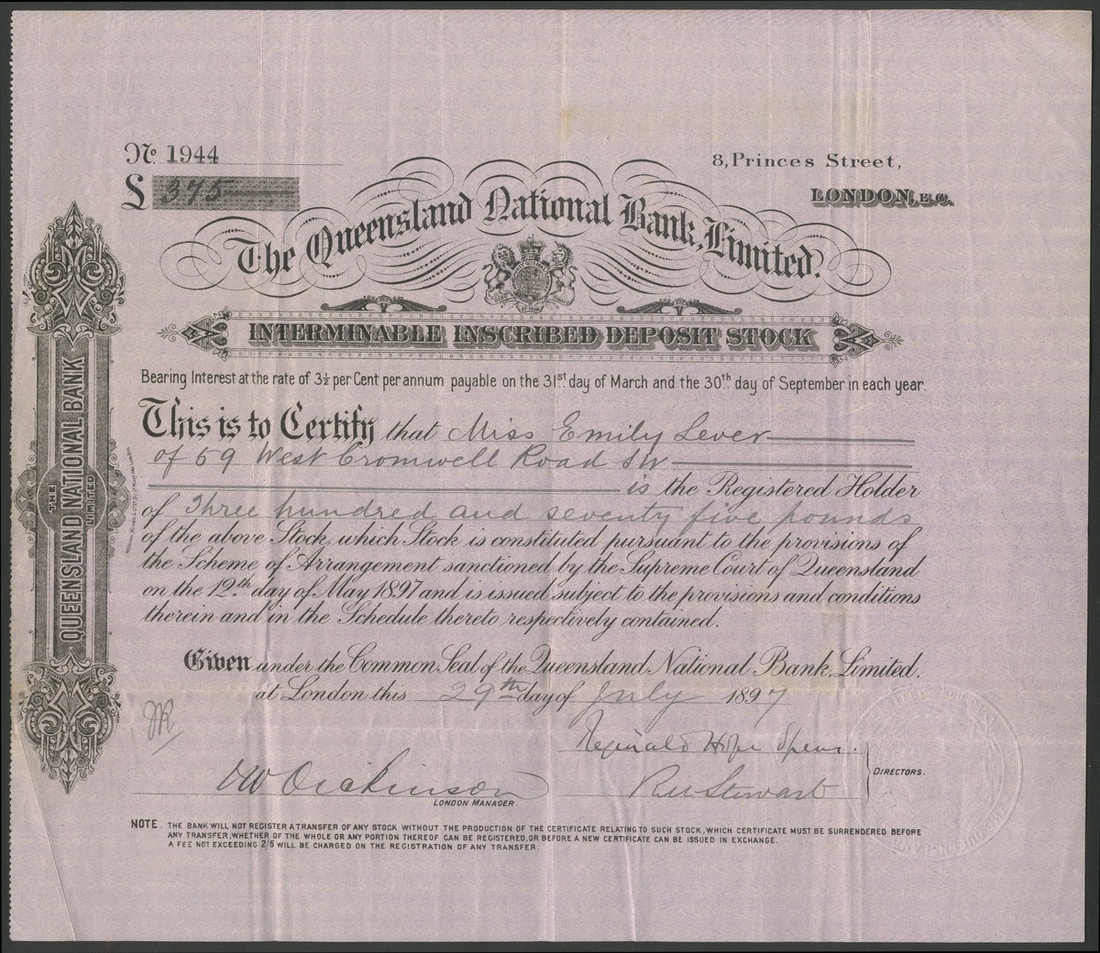 No 1944
8, Princes Street,
£ 375
LONDON, E.C.
The Queensland National Bank, Limited.
INTERMINABLE INSCRIBED DEPOSIT STOCK
Bearing Interest at the rate of 3½ per Cent per annum payable on the 31st day of March and the 30th day of September in each year.
This is to Certify that Miss Emily Lever
of 59 West Cromwell Road SW
is the Registered Holder
of Three hundred and seventy five pounds
of the above Stock, which Stock is constituted pursuant to the provisions of
the Scheme of Arrangement sanctioned by the Supreme Court of Queensland
on the 12th day of May 1897 and is issued subject to the provisions and conditions
therein and in the Schedule thereto respectively contained.
Given under the Common Seal of the Queensland National Bank, Limited.
at London this 29th day of July 1897
Reginald Hope
DIRECTORS.
Dickinson
Stewart
LONDON MANAGER.
NOTE. THE BANK WILL NOT REGISTER A TRANSFER OF ANY STOCK WITHOUT THE PRODUCTION OF THE CERTIFICATE RELATING TO SUCH STOCK, WHICH CERTIFICATE MUST BE SURRENDERED BEFORE
ANY TRANSFER, WHETHER OF THE WHOLE OR ANY PORTION THEREOF CAN BE REGISTERED, OR BEFORE A NEW CERTIFICATE CAN BE ISSUED IN EXCHANGE.
A FEE NOT EXCEEDING 2/6 WILL BE CHARGED ON THE REGISTRATION OF ANY TRANSFER.
THE
QUEENSLAND NATIONAL BANK
LIMITED